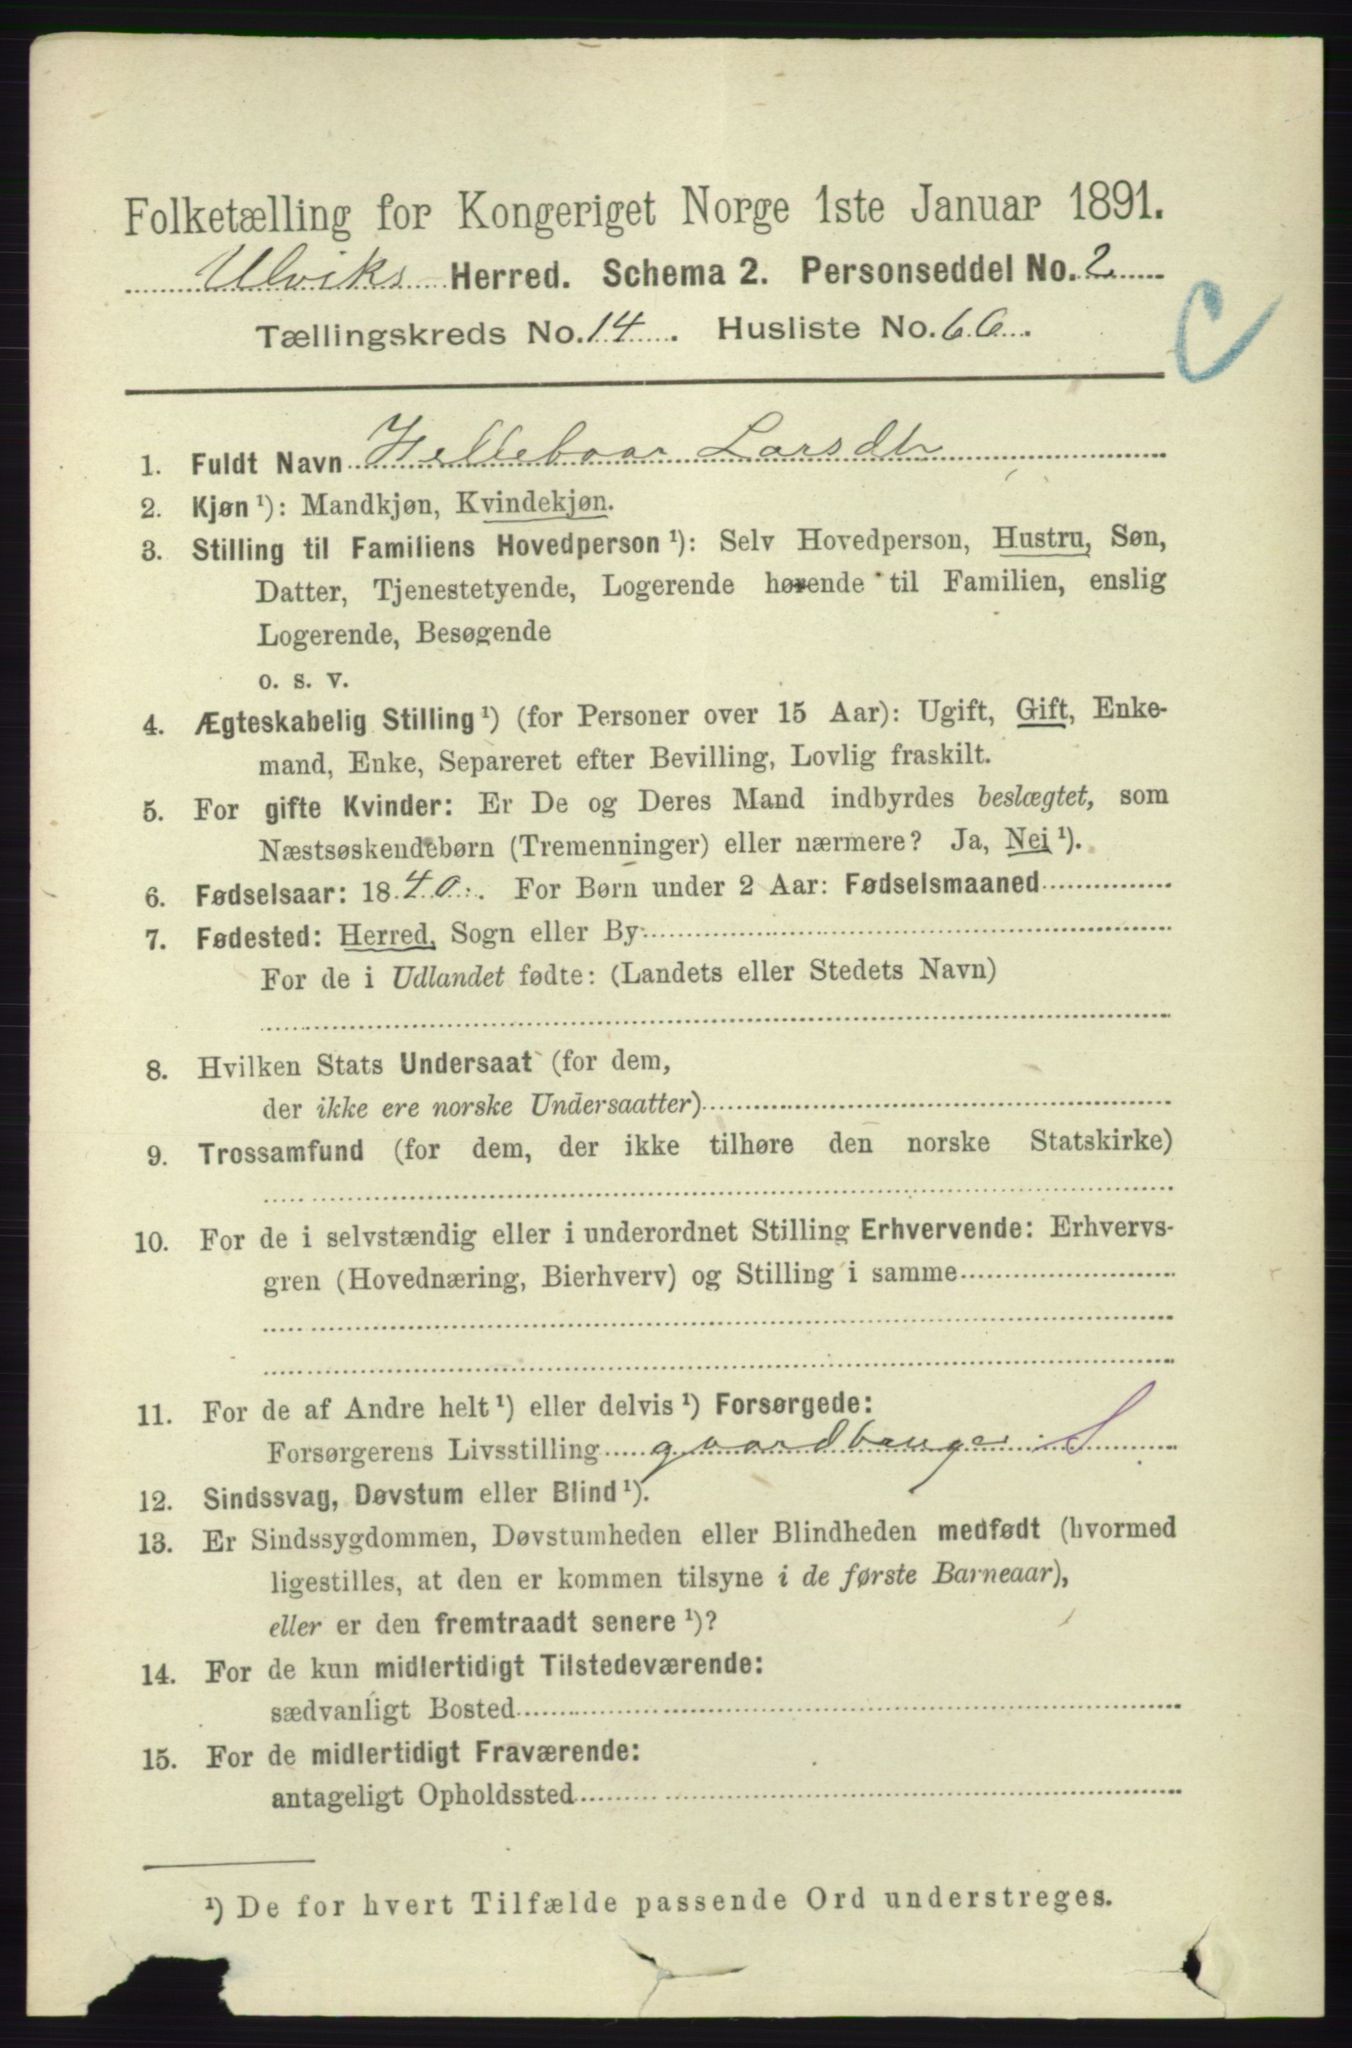 Folketælling for Kongeriget Norge 1ste Januar 1891.
Ulviks Herred. Schema 2. Personseddel No. 2
Tællingskreds No. 14. Husliste No. 66.
C
1. Fuldt Navn Helleboar Larsdtr
2. Kjøn ¹): Mandkjøn, Kvindekjøn.
3. Stilling til Familiens Hovedperson ¹): Selv Hovedperson, Hustru, Søn,
Datter, Tjenestetyende, Logerende hørende til Familien, enslig
Logerende, Besøgende
o. s. v.
4. Ægteskabelig Stilling ¹) (for Personer over 15 Aar): Ugift, Gift, Enke-
mand, Enke, Separeret efter Bevilling, Lovlig fraskilt.
5. For gifte Kvinder: Er De og Deres Mand indbyrdes beslægtet, som
Næstsøskendebørn (Tremenninger) eller nærmere? Ja, Nei ¹).
6. Fødselsaar: 1840. For Børn under 2 Aar: Fødselsmaaned
7. Fødested: Herred, Sogn eller By
For de i Udlandet fødte: (Landets eller Stedets Navn)
8. Hvilken Stats Undersaat (for dem,
der ikke ere norske Undersaatter)
9. Trossamfund (for dem, der ikke tilhøre den norske Statskirke)
10. For de i selvstændig eller i underordnet Stilling Erhvervende: Erhvervs-
gren (Hovednæring, Bierhverv) og Stilling i samme
11. For de af Andre helt ¹) eller delvis ¹) Forsørgede:
Forsørgerens Livsstilling gaardbruger S
12. Sindssvag, Døvstum eller Blind ¹).
13. Er Sindssygdommen, Døvstumheden eller Blindheden medfødt (hvormed
ligestilles, at den er kommen tilsyne i de første Barneaar),
eller er den fremtraadt senere ¹)?
14. For de kun midlertidigt Tilstedeværende:
sædvanligt Bosted
15. For de midlertidigt Fraværende:
antageligt Opholdssted
¹) De for hvert Tilfælde passende Ord understreges.